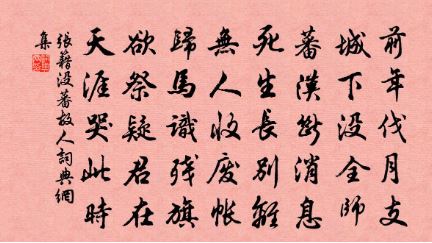 前年伐月支
城下没全師
蕃漢斷消息
死生長別離
無人收廢帳
歸馬識殘旗
欲祭疑君在
天涯哭此時
張籍没蕃故人詞典網
集